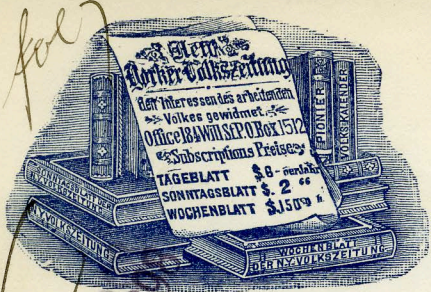 New
Yorker Volkszeitung
den Interessen des arbeitenden
Volkes gewidmet.
Office 184 Will St P.O. Box 1512
Subscriptions Preise
TAGEBLATT $.6-
SONNTAGSBLATT $.2 "
WOCHENBLATT $.150
PIONIER
VOLKS KALENDER
SONNTAGSBLATT DER
N.Y. VOLKSZEITUNG
N.Y. VOLKSZEITUNG
WOCHENBLATT
DER N.Y. VOLKSZEITUNG